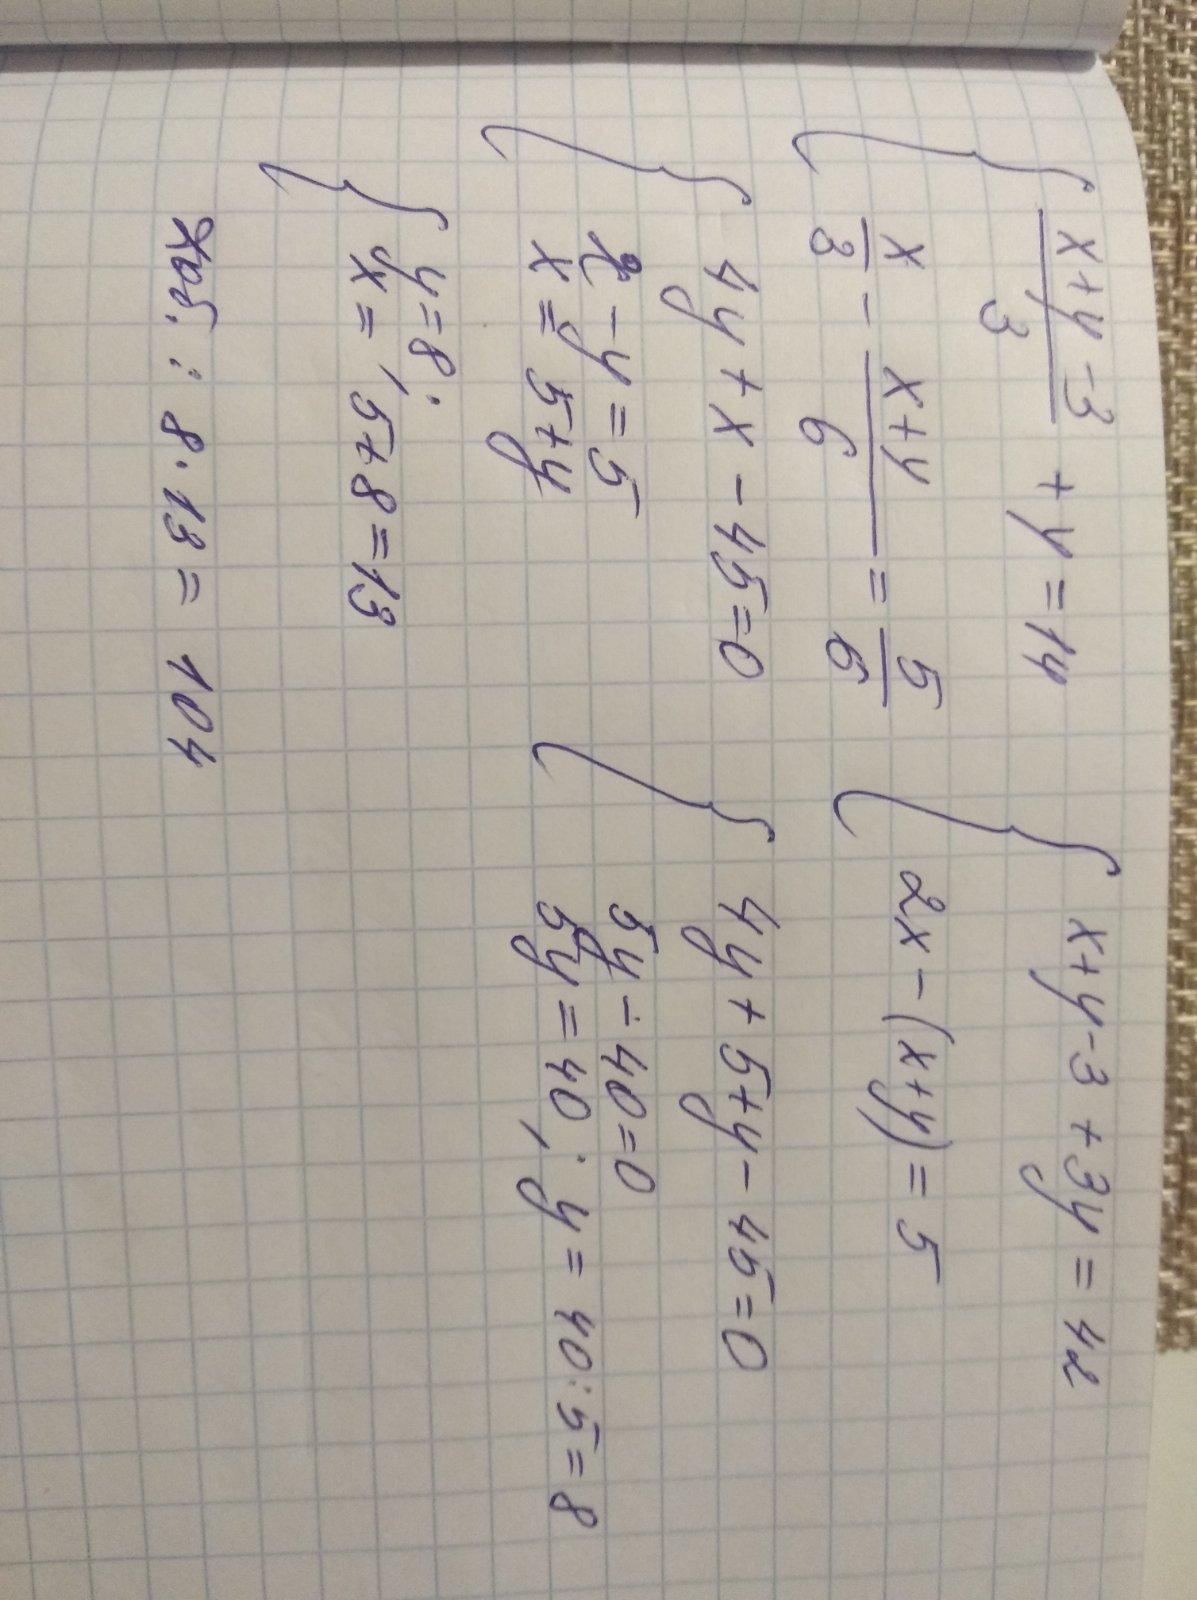 (x+y-3)/3 + y = 14
x/3 - (x+y)/6 = 5/6
x+y-3+3y=42
2x-(x+y)=5
4y+x-45=0
x-y=5
x=5+y
4y+5+y-45=0
5y-40=0
5y=40; y=40:5=8
y=8;
x=5+8=13
: 8·13=104